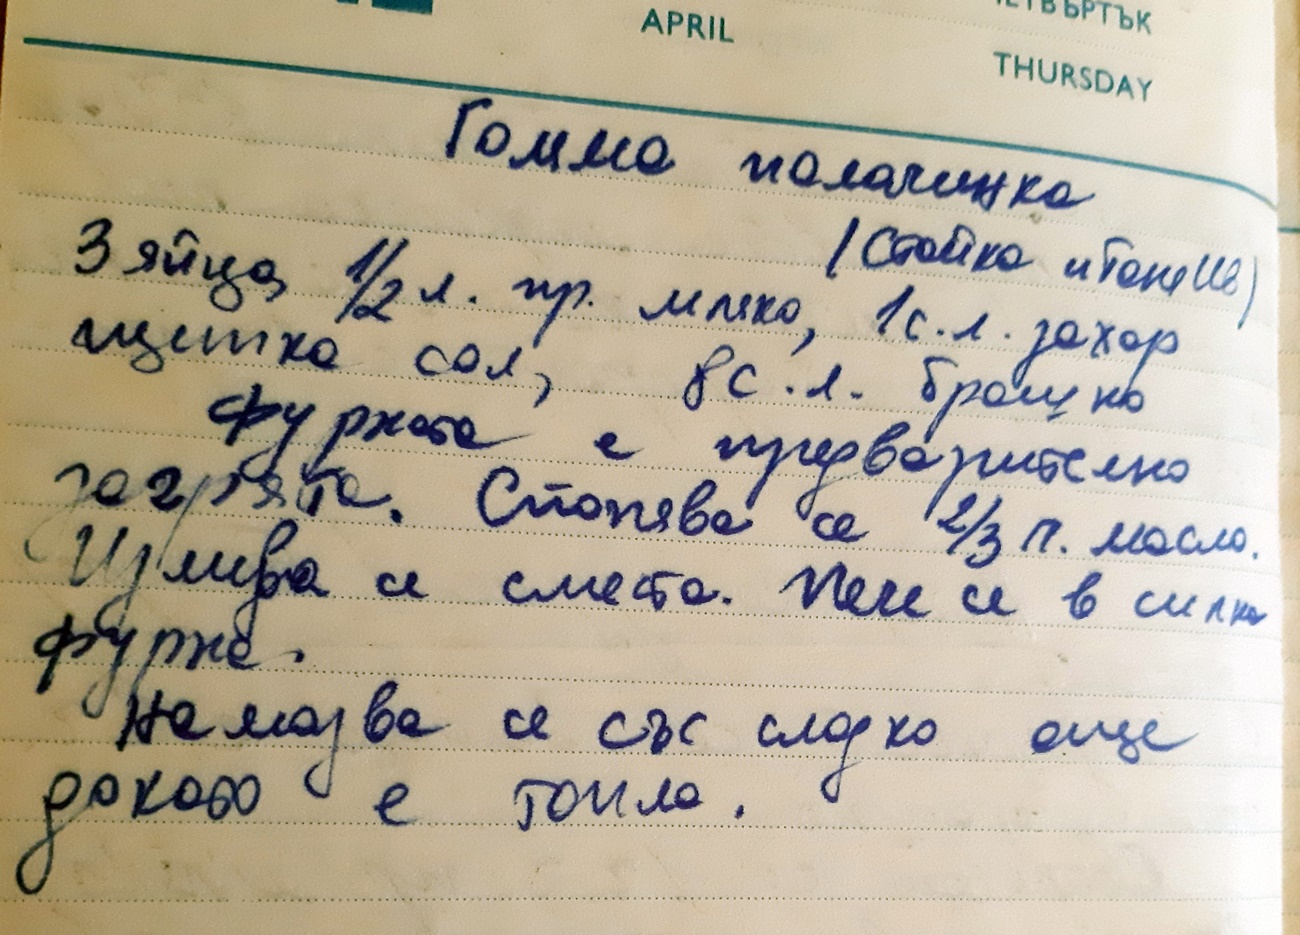 APRIL
ЧЕТВЪРТЪК
THURSDAY
Голяма палачинка
(Стойка и Таня Ив)
3 яйца, 1/2 л. пр. мляко, 1 с.л. захар
щипка сол, 8 с.л. брашно
Фурната е предварително
загрята. Стопява се 2/3 п. масло.
Излива се сместа. Пече се в силна
фурна.
Намазва се със сладко още
докато е топла.